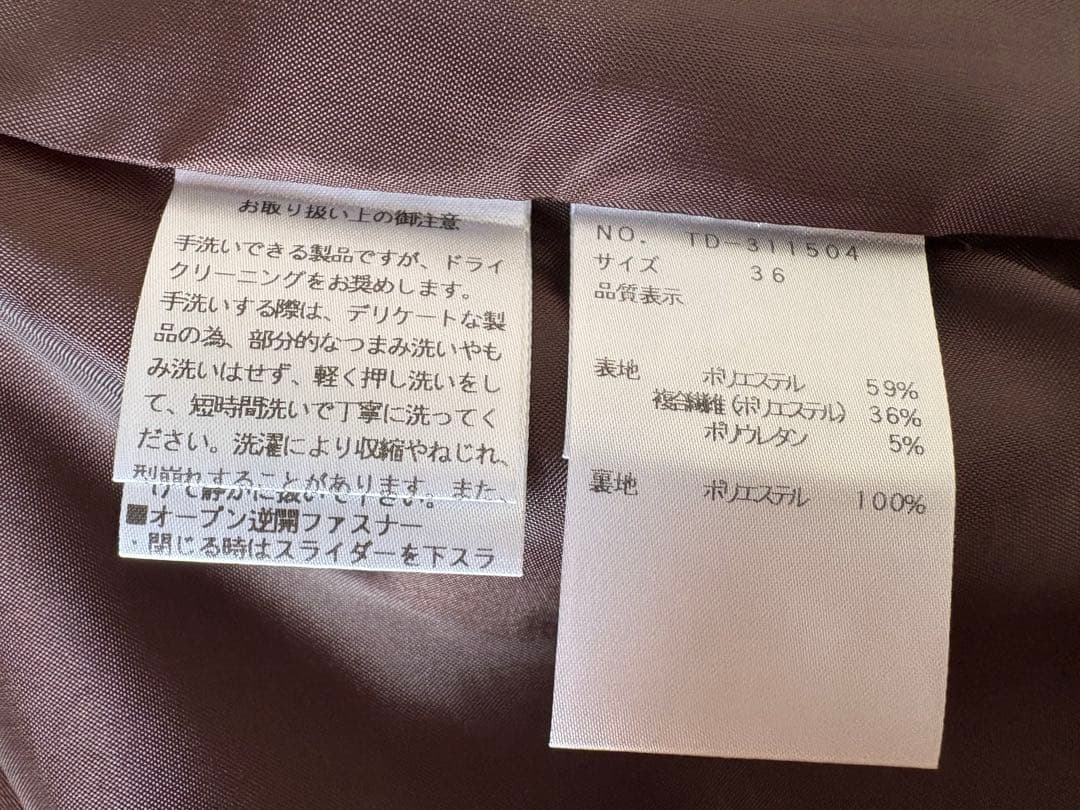 お取り扱い上の御注意
手洗いできる製品ですが、ドライ
クリーニングをお奨めします。
手洗いする際は、デリケートな製
品の為、部分的なつまみ洗いやも
み洗いはせず、軽く押し洗いをし
て、短時間洗いで丁寧に洗ってく
ださい。洗濯により収縮やねじれ、
型崩れすることがあります。また、
けて静かに扱いて下さい。
■オープン逆開ファスナー
・閉じる時はスライダーを下スラ
NO. TD-311504
サイズ 36
品質表示
表地 ポリエステル 59%
複合繊維(ポリエステル) 36%
ポリウレタン 5%
裏地 ポリエステル 100%